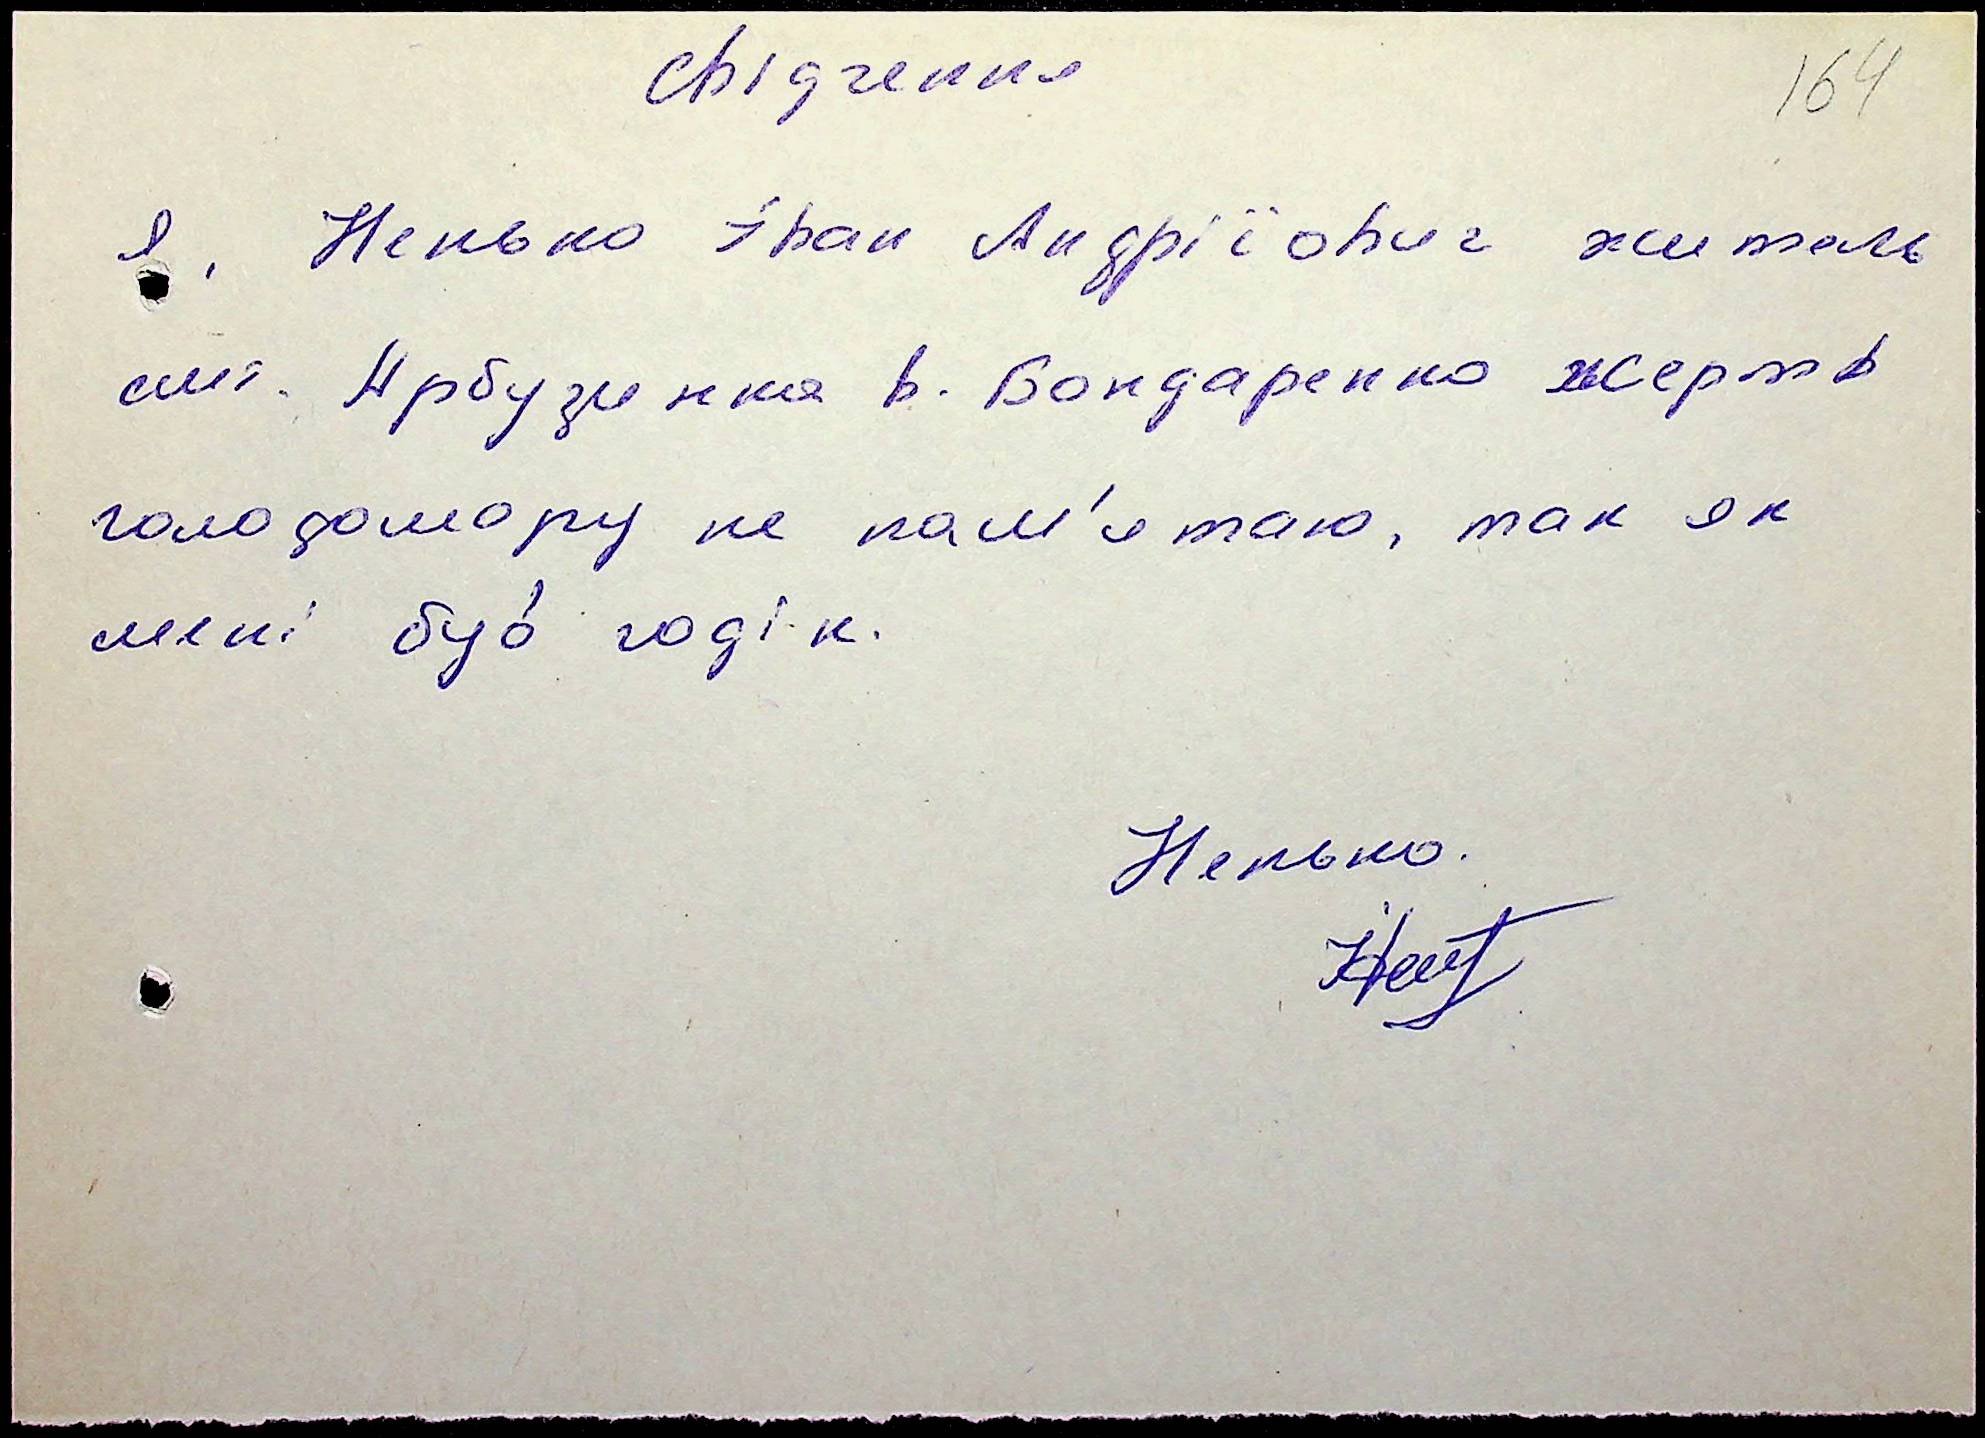 свідчення
164
Я, Ненько Іван Андріїович житель
смт. Арбузинка в. Бондаренко жертв
голодомору не пам'ятаю, так як
мені був годік.
Ненько.